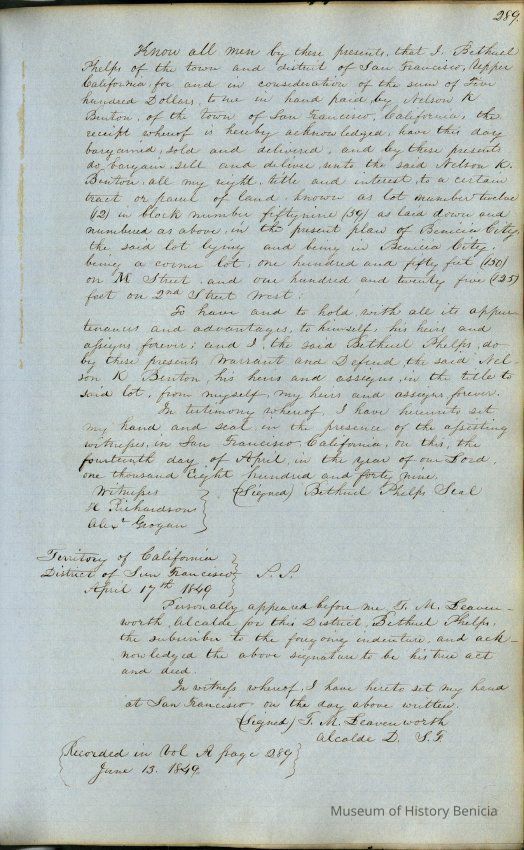 289.
Know all men by these presents, that I. Bethuel
Phelps of the town and district of San Francisco, Upper
California, for and in consideration of the sum of Five
hundred Dollars, to me in hand paid by Nelson K
Benton, of the town of San Francisco, California, the
receipt whereof is hereby acknowledged, have this day
bargained, sold and delivered, and by these presents
do bargain, sell and deliver, unto the said Nelson K.
Benton, all my right, title and interest, to a certain
tract or parcel of land, known as lot number twelve
(12) in block number fiftynine (59) as laid down and
numbered as above, in the present plan of Benicia City,
the said lot lying and being in Benicia City,
being a corner lot, one hundred and fifty feet (150)
on M Street, and one hundred and twenty five (125)
feet on 2nd Street West:
To have and to hold with all its appur-
tenances and advantages, to himself, his heirs and
assigns forever; and I, the said Bethuel Phelps, do
by these presents Warrant and Defend the said Nel-
son K Benton, his heirs and assigns, in the title to
said lot, from myself, my heirs and assigns forever.
In testimony whereof, I have hereunto set
my hand and seal, in the presence of the assetting
witnesses, in San Francisco, California, on this, the
fourteenth day of April, in the year of our Lord,
one thousand Eight hundred and forty nine.
Witnesses (Signed) Bethuel Phelps Seal
H Richardson
Alexr Grogan
Territory of California
District of San Francisco S. S.
April 17th 1849
Personally appeared before me T. M. Leaven-
worth, Alcalde for this District, Bethuel Phelps,
the subscriber to the foregoing indenture, and ack-
nowledged the above signature to be his true act
and deed.
In witness whereof, I have hereto set my hand
at San Francisco, on the day above written.
(Signed) T. M. Leavenworth
Alcalde D. S. F.
Recorded in Vol A page 289
June 13. 1849.
Museum of History Benicia